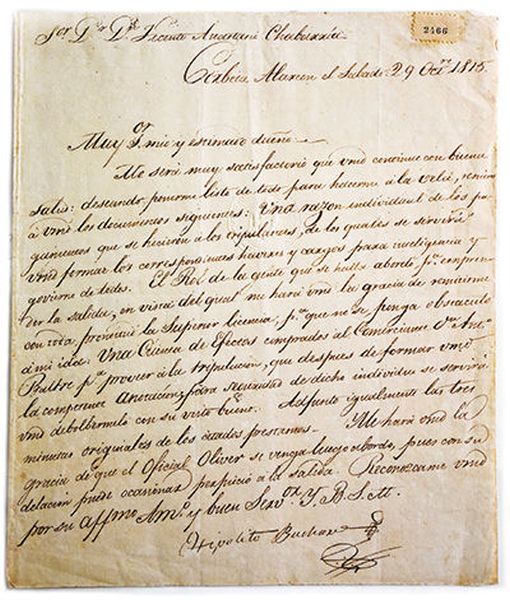 2466
Sor. Dor. Dn. Vicente Anastacio Chabarría
Corbeta Alarcon el Sabado 29 Octre. 1815.
Muy Sor. mio y estimado dueño:
Me será muy satisfactorio que vmd continue con buena
salud: deseando ponerme listo de todo para hacerme á la vela, remito
á vmd los documentos siguientes: Una razon individual de los pa-
gamentos que se hicieron á los tripulantes, de los quales se servirá
vmd formar los correspondientes haveres y cargos para inteligencia y
govierno de todos. El Rol de la gente que se halla abordo pa. empren-
der la salida, en vista del qual me hará vmd la gracia de remitirme
con nota, promitiu la Superior licencia, pa. que no se ponga obstaculo
á mi idea. Una Cuenta de Efectos comprados al Comerciante Dn.
pa. proveer á la tripulacion, que despues de formar vmd
la competente Anotacion para requisitos de dicho individuo se servirá
vmd debolbermelo con su visto bueno. Adjunto igualmente las tres
minutas originales de los citados prestamos. Me hará vmd la
gracia de que el Oficial Oliver se venga luego abordo, pues con su
delacion puede ocasionar perjuicio á la salida. Reconoscame vmd
por su Affmo Amo. y buen Servor. Q. B. S. M.
Hipolito Buchar